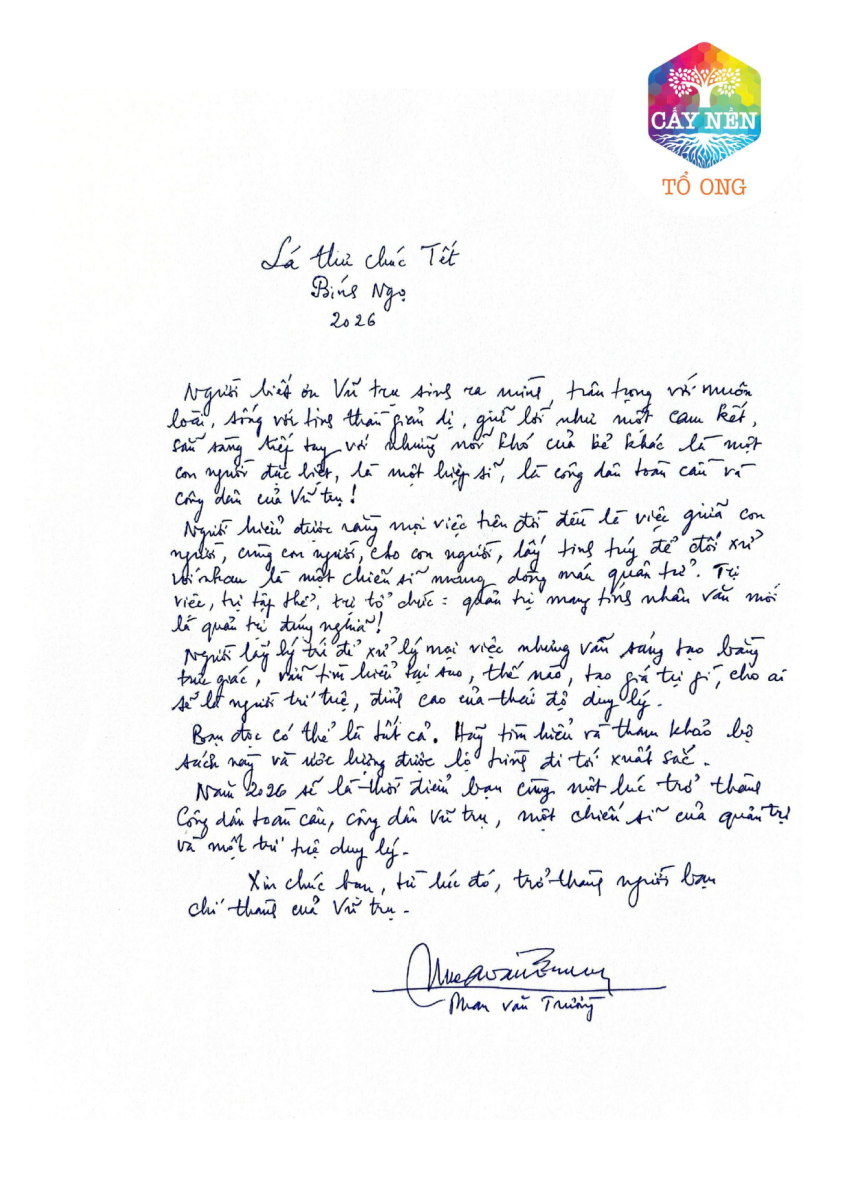 CẤY NỀN
TỔ ONG
Lá thư chúc Tết
Bính Ngọ
2026
Người biết ơn Vũ trụ sinh ra mình, trân trọng với muôn
loài, sống với tinh thần giản dị, giữ lời như một cam kết,
sẵn sàng tiếp tay với những nỗi khó của kẻ khác là một
con người đặc biệt, là một hiệp sĩ, là công dân toàn cầu và
công dân của Vũ trụ!
Người hiểu được rằng mọi việc trên đời đều là việc giữa con
người, cùng con người, cho con người, lấy tinh túy để đối xử
với nhau là một chiến sĩ mang dòng máu quân tử. Trị
việc, trị tập thể, trị tổ chức: quản trị mang tính nhân văn mới
là quản trị đúng nghĩa!
Người lấy lý trí để xử lý mọi việc nhưng vẫn sáng tạo bằng
trực giác, vẫn tìm hiểu tại sao, thế nào, tạo giá trị gì, cho ai
sẽ là người trí tuệ, đỉnh cao của thái độ duy lý.
Bạn đọc có thể là tất cả. Hãy tìm hiểu và tham khảo bộ
sách này và ước lượng được lộ trình đi tới xuất sắc.
Năm 2026 sẽ là thời điểm bạn cùng một lúc trở thành
Công dân toàn cầu, công dân Vũ trụ, một chiến sĩ của quản trị
và một trí tuệ duy lý.
Xin chúc bạn, từ lúc đó, trở thành người bạn
chí thành của Vũ trụ.
Phan Văn Trường